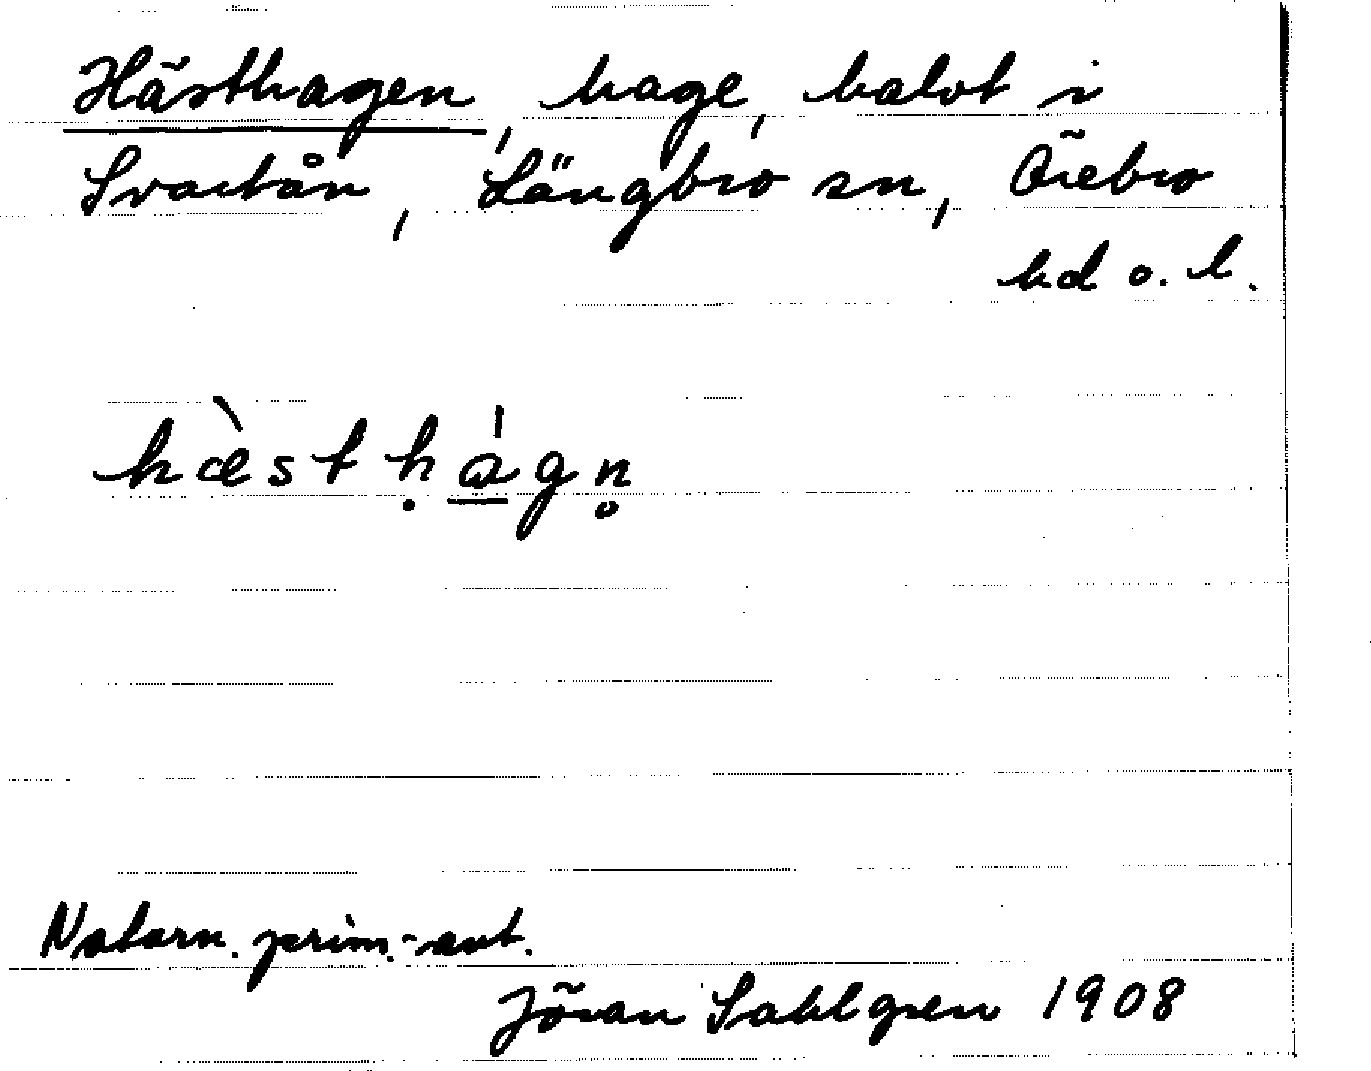 Hästhagen, hage, halvt i
Svartån, Längbro sn, Örebro
hd o. l.
hæ̀stḥa̲̍gn̥
Naturn. prim.-ant.
Jöran Sahlgren 1908